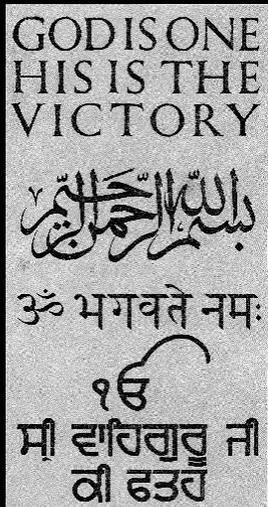 GOD IS ONE
HIS IS THE
VICTORY
بسم الله الرحمن الرحيم
ॐ भगवते नमः
ੴ
ਸ੍ਰੀ ਵਾਹਿਗੁਰੂ ਜੀ
ਕੀ ਫਤਹ